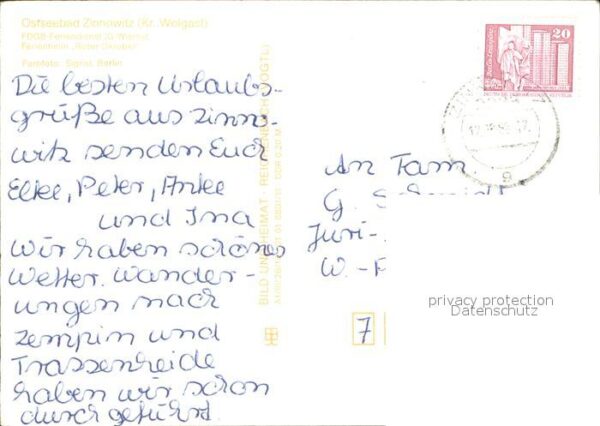 Ostseebad Zinnowitz (Kr. Wolgast)
FDGB-Feriendienst IG Wismut
Ferienheim „Roter Oktober"
Farbfoto: Sigrist, Berlin
Die besten Urlaubs-
grüße aus Zinno-
witz senden Euch
Elke, Peter, Anke
und Ina
Wir haben schönes
Wetter. Wander-
ungen nach
Zempin und
Trassenheide
haben wir schon
durchgeführt.
BILD UND HEIMAT · REICHENBACH (VOGTL)
DDR 0,20 M
20
9
An Fam
G.
Juri-
W.-P
7
privacy protection
Datenschutz